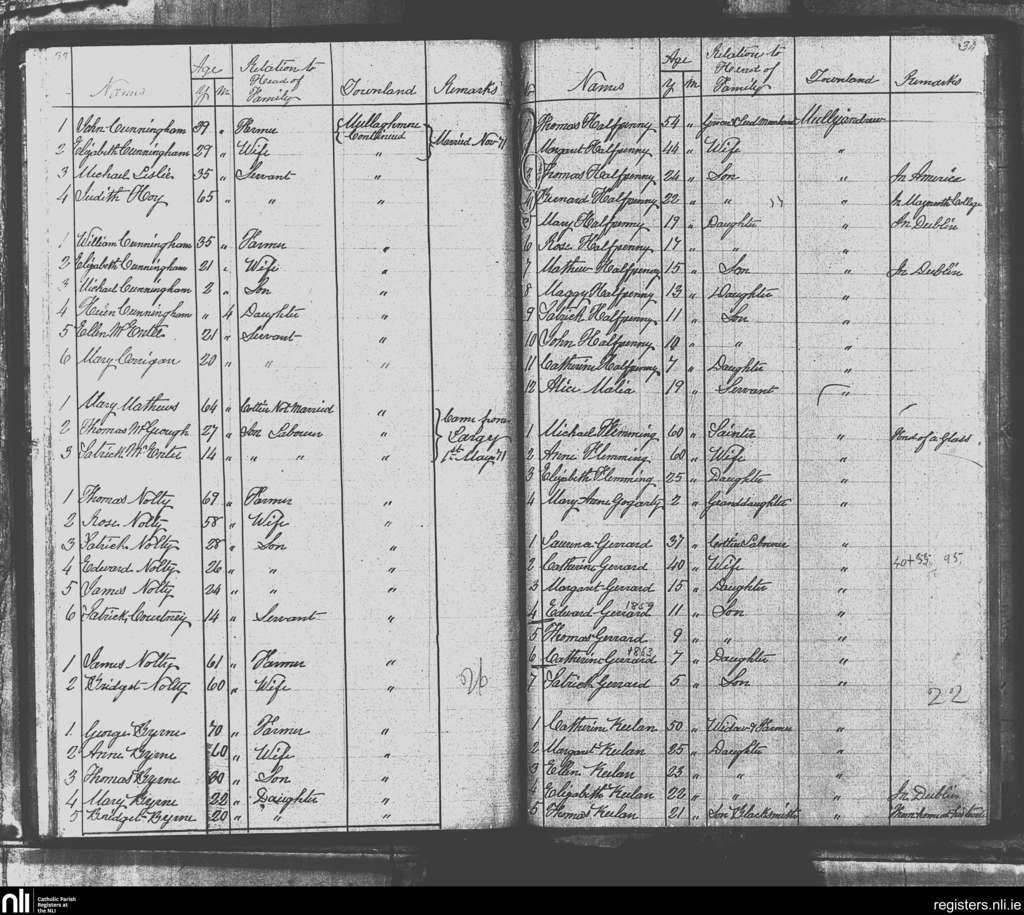 Names Age Relation to Townland Remarks
Y M Head of
Family
1 John Cunningham 39 " Farmer Mullaghmore
Continued Married Nov 71
2 Elizabeth Cunningham 29 " Wife "
3 Michael Leslie 35 " Servant "
4 Judith Hoy 65 " " "
1 William Cunningham 35 " Farmer "
2 Elizabeth Cunningham 21 " Wife "
3 Michael Cunningham 2 " Son "
4 Cunningham " 4 Daughter "
5 Ellen McEntee 21 " Servant "
6 Mary Corrigan 20 " " "
1 Mary Mathews 64 " Cottier Not Married " Came from
2 Thomas McGeough 27 " Son Labourer " Largy
3 Patrick McEntee 14 " " " " 1st May 71
1 Thomas Nolty 69 " Farmer "
2 Rose Nolty 58 " Wife "
3 Patrick Nolty 28 " Son "
4 Edward Nolty 26 " " "
5 James Nolty 24 " " "
6 Patrick Courtney 14 " Servant "
1 James Nolty 61 " Farmer "
2 Bridget Nolty 60 " Wife "
26
1 George Byrne 70 " Farmer "
2 Anne Byrne 60 " Wife "
3 Thomas Byrne 30 " Son "
4 Mary Byrne 22 " Daughter "
5 Bridget Byrne 20 " " "
34
No Names Age Relation to Townland Remarks
Y M Head of
Family
1 Thomas Halfpenny 54 " Merchant Mullyjordan
2 Margaret Halfpenny 44 " Wife "
3 Thomas Halfpenny 24 " Son " In America
4 Bernard Halfpenny 22 " " " In Maynooth College
5 Mary Halfpenny 19 " Daughter " In Dublin
6 Rose Halfpenny 17 " " "
7 Mathew Halfpenny 15 " Son " In Dublin
8 Maggy Halfpenny 13 " Daughter "
9 Patrick Halfpenny 11 " Son "
10 John Halfpenny 10 " " "
11 Catherine Halfpenny 7 " Daughter "
12 Alice Malia 19 " Servant "
1 Michael Flemming 60 " Painter " Fond of a Glass
2 Anne Flemming 60 " Wife "
3 Elizabeth Flemming 25 " Daughter "
4 Mary Anne Gogarty 2 " Granddaughter "
1 Laurence Gerrard 37 " Cottier Labourer "
2 Catherine Gerrard 40 " Wife " 40+55 95
3 Margaret Gerrard 15 " Daughter "
4 Edward Gerrard 1859 11 " Son "
5 Thomas Gerrard 9 " " "
6 Catherine Gerrard 1863 7 " Daughter "
7 Patrick Gerrard 5 " Son "
22
1 Catherine Keelan 50 " Widow & Farmer "
2 Margaret Keelan 25 " Daughter "
3 Ellen Keelan 23 " " "
4 Elizabeth Keelan 22 " " " In Dublin
5 Thomas Keelan 21 " Son Blacksmith " from home at his trade
nli Catholic Parish
Registers at
the NLI
registers.nli.ie